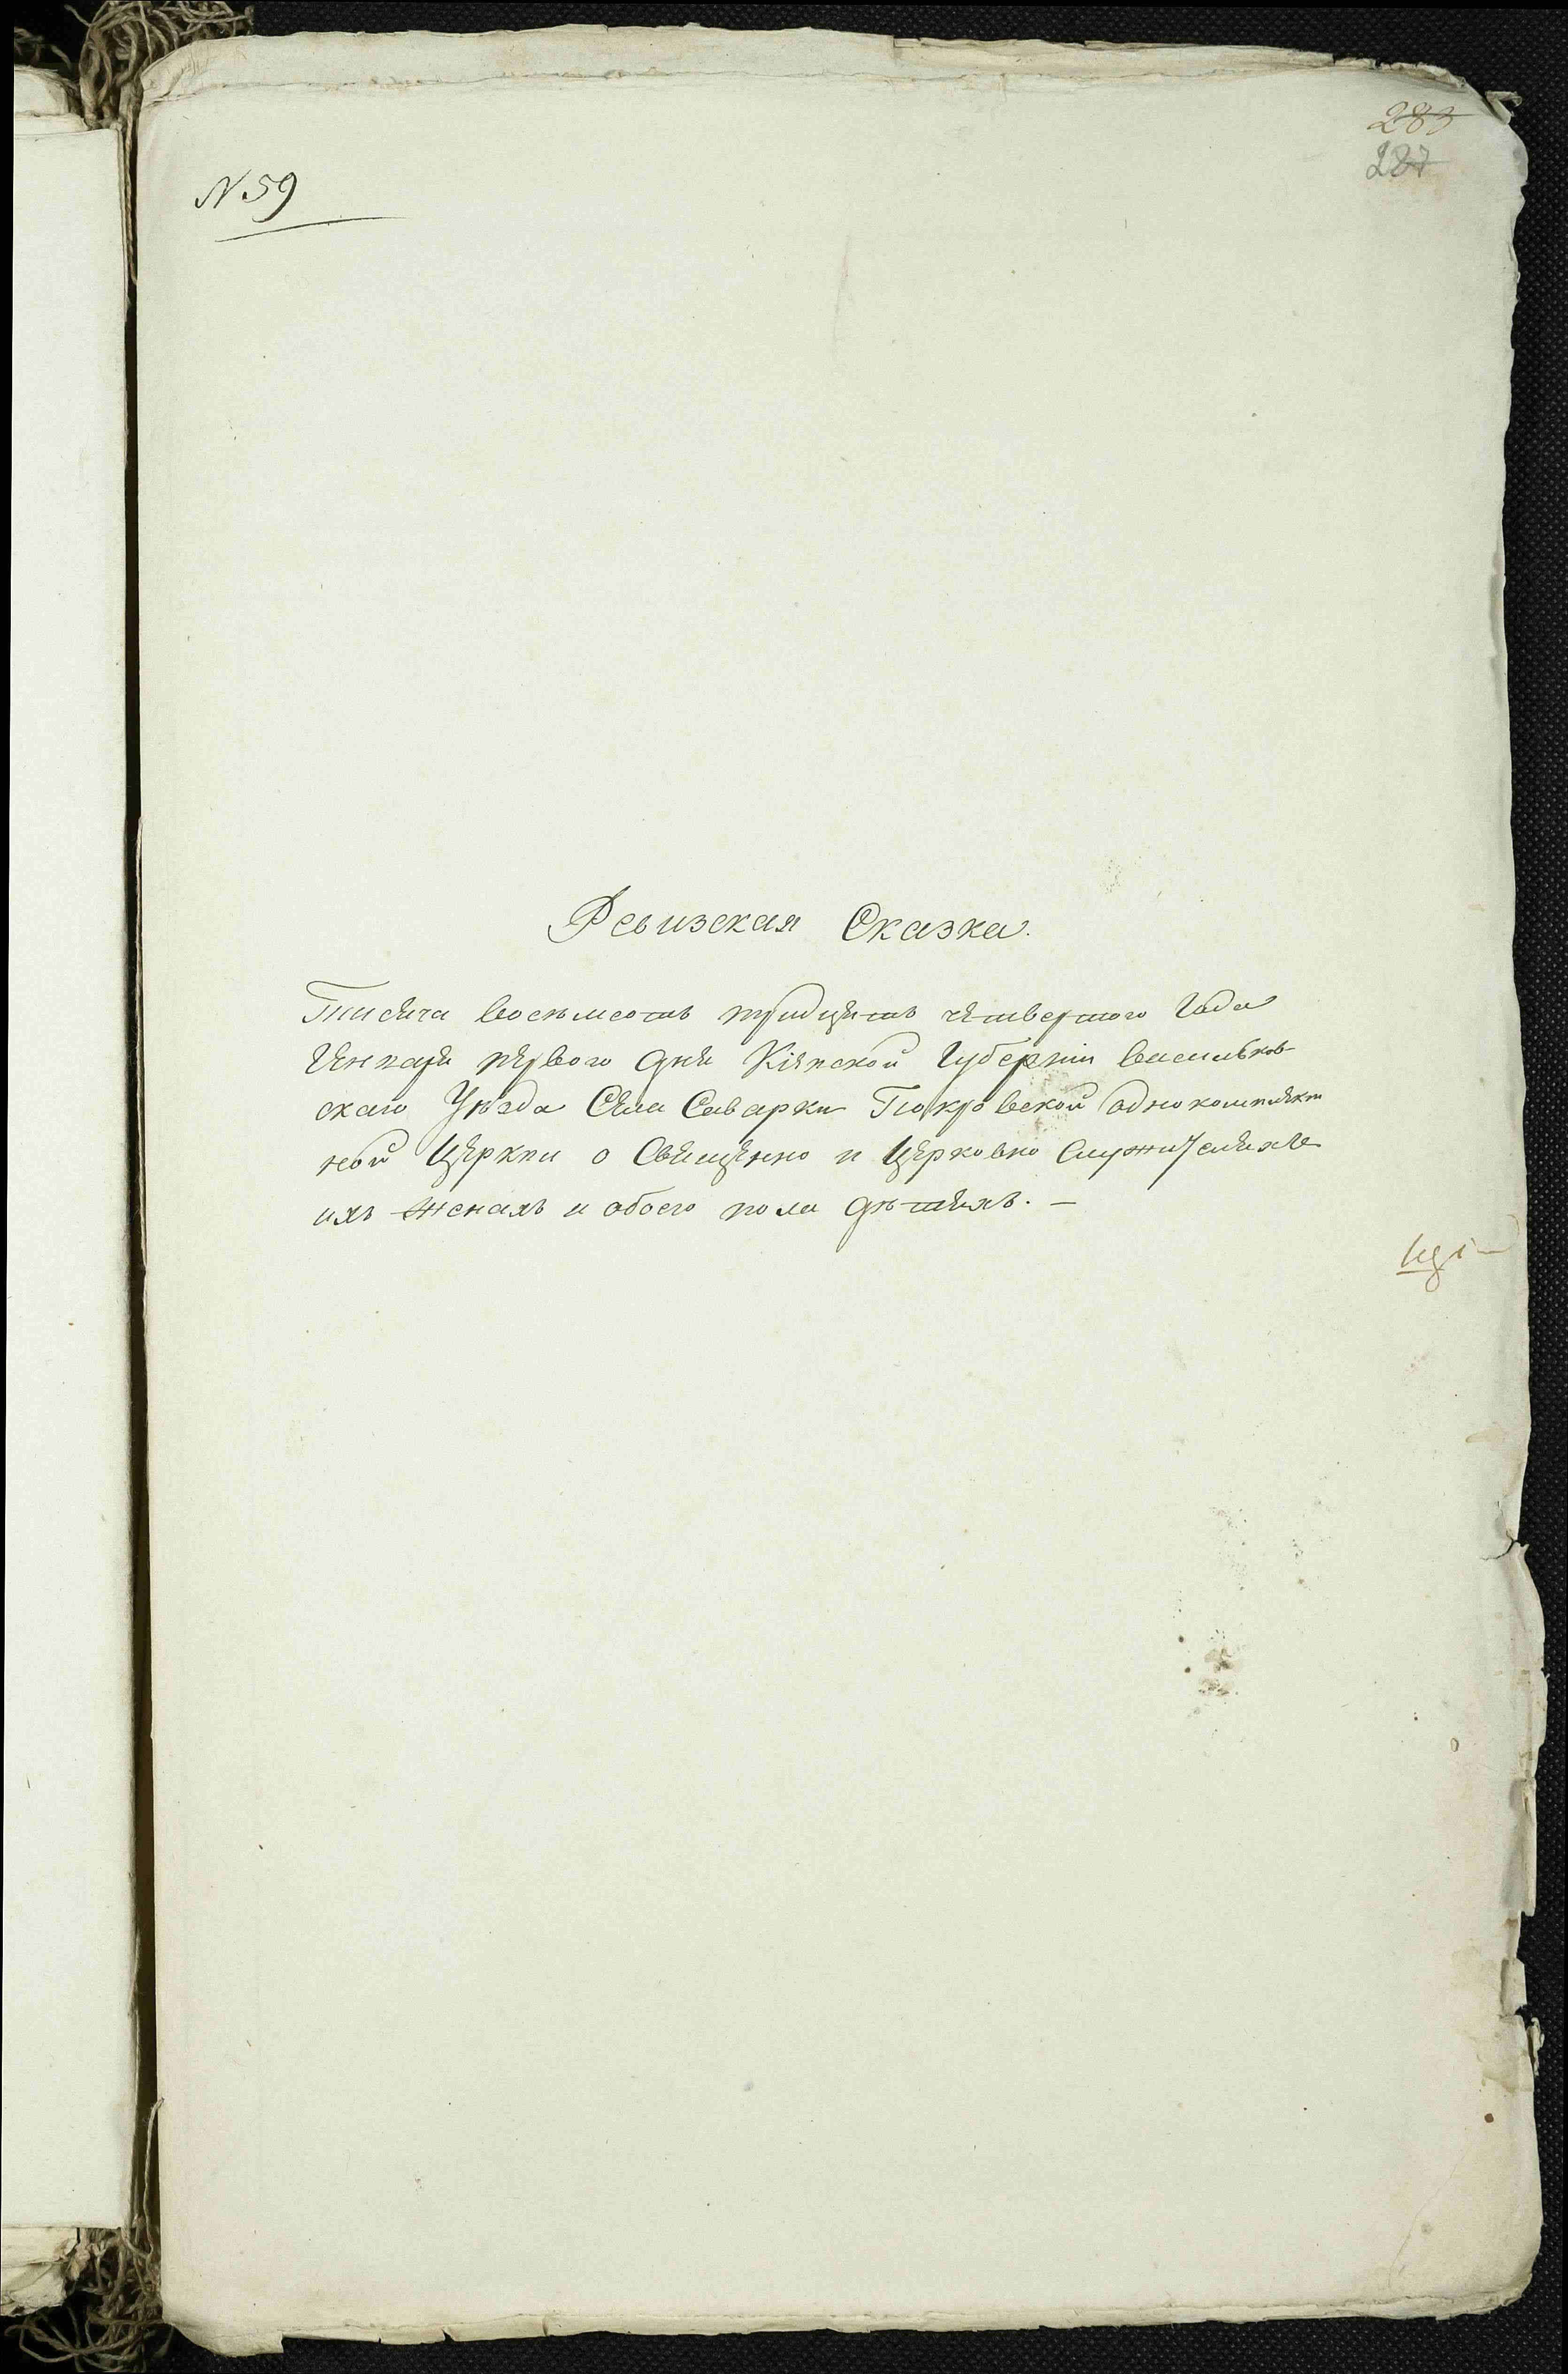 283
287
N 59
Ревизская Сказка.
Тысяча восемьсотъ тридцать четвертого года
Генваря первого дня Кіевской Губерніи Васильков-
скаго Уѣзда Села Саварки Покровской однокомплект
ной Церкви о Священно и Церковно служителяхъ
ихъ женахъ и обоего пола дѣтяхъ. —